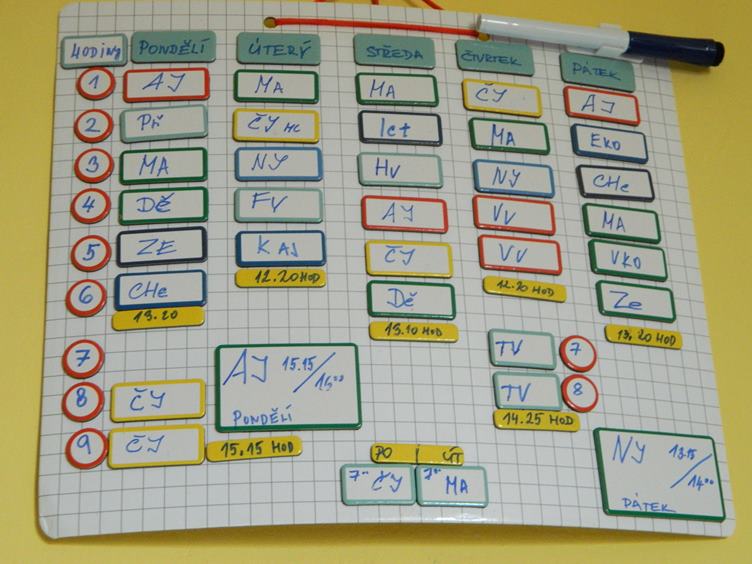 HODINY PONDĚLÍ ÚTERÝ STŘEDA ČTVRTEK PÁTEK
1 AJ MA MA ČJ AJ
2 Př ČJ HC Ict MA EKO
3 MA NJ HV NJ CHe
4 DĚ FY AJ VV MA
5 ZE KAJ ČJ VV VKO
6 CHe 12.20 HOD Dě 12.20 HOD Ze
13.20 13.10 HOD 13,20 HOD
7 AJ 15.15/16.00 TV 7
8 ČJ PONDĚLÍ TV 8
14.25 HOD
9 ČJ 15,15 HOD PO ÚT NJ 13.15/14.00
ČJ MA PÁTEK